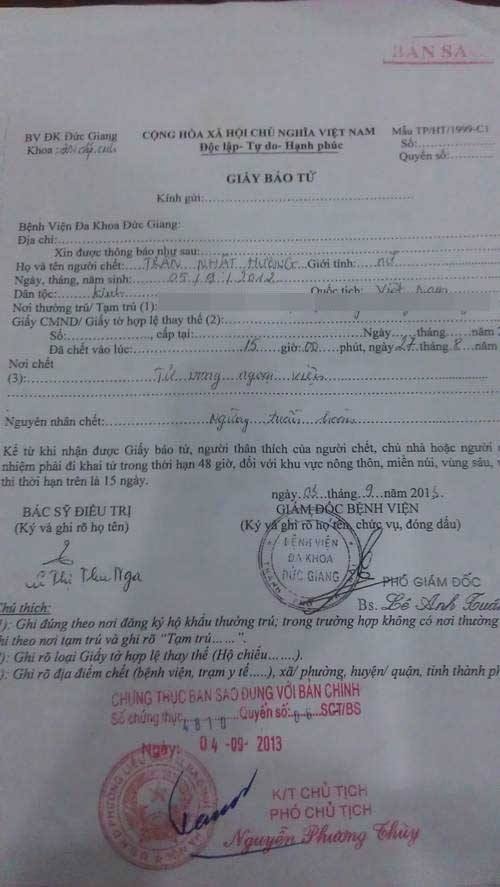 BẢN SAO
BV ĐK Đức Giang
Khoa :
CỘNG HÒA XÃ HỘI CHỦ NGHĨA VIỆT NAM
Độc lập- Tự do- Hạnh phúc
Mẫu TP/HT/1999-C1
Số:
Quyển số:
GIẤY BÁO TỬ
Kính gửi:
Bệnh Viện Đa Khoa Đức Giang:
Địa chỉ:
Xin được thông báo như sau:
Họ và tên người chết: TRẦN NHẬT HƯƠNG Giới tính: nữ
Ngày, tháng, năm sinh: 05/9/2012
Dân tộc: Kinh Quốc tịch: Việt Nam
Nơi thường trú/ Tạm trú (1):
Giấy CMND/ Giấy tờ hợp lệ thay thế (2):
Số:, cấp tại: Ngày tháng năm 2
Đã chết vào lúc: 15 giờ: 00 phút, ngày 27 tháng 8 năm
Nơi chết
(3): Tử vong ngoại viện
Nguyên nhân chết: Ngừng tuần hoàn
Kể từ khi nhận được Giấy báo tử, người thân thích của người chết, chủ nhà hoặc người
nhiệm phải đi khai tử trong thời hạn 48 giờ, đối với khu vực nông thôn, miền núi, vùng sâu,
thì thời hạn trên là 15 ngày.
ngày 03 tháng 9 năm 2013
BÁC SỸ ĐIỀU TRỊ
(Ký và ghi rõ họ tên)
GIÁM ĐỐC BỆNH VIỆN
(Ký và ghi rõ họ tên, chức vụ, đóng dấu)
BỆNH VIỆN
ĐA KHOA
ĐỨC GIANG
Thị Thu Nga
PHÓ GIÁM ĐỐC
Bs. Lê Anh Tuấn
Chú thích:
1): Ghi đúng theo nơi đăng ký hộ khẩu thường trú; trong trường hợp không có nơi thường
ghi theo nơi tạm trú và ghi rõ “Tạm trú……”.
2): Ghi rõ loại Giấy tờ hợp lệ thay thế (Hộ chiếu…….).
): Ghi rõ địa điểm chết (bệnh viện, trạm y tế…..), xã/ phường, huyện/ quận, tỉnh thành
CHỨNG THỰC BẢN SAO ĐÚNG VỚI BẢN CHÍNH
Số chứng thực 4810 Quyển số: 06 SCT/BS
Ngày: 04 -09- 2013
K/T CHỦ TỊCH
PHÓ CHỦ TỊCH
Nguyễn Phương Thùy